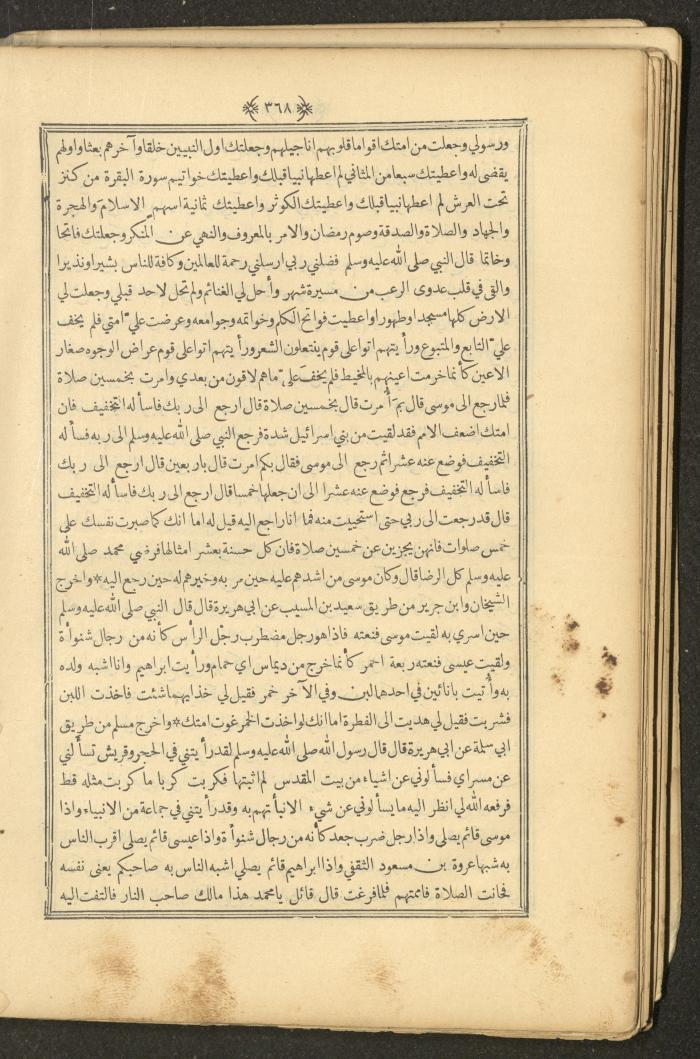 ﴿ ٣٦٨ ﴾
ورسولي وجعلت من امتك اقواما قلوبهم اناجيلهم وجعلتك اول النبيين خلقا وآخرهم بعثا واولهم
يقضى له واعطيتك سبعا من المثاني لم اعطها نبيا قبلك واعطيتك خواتيم سورة البقرة من كنز
تحت العرش لم اعطها نبيا قبلك واعطيتك الكوثر واعطيتك ثمانية اسهم الاسلام والهجرة
والجهاد والصلاة والصدقة وصوم رمضان والامر بالمعروف والنهي عن المنكر وجعلتك فاتحا
وخاتما قال النبي صلى الله عليه وسلم فضلني ربي ارسلني رحمة للعالمين وكافة للناس بشيرا ونذيرا
والقى في قلب عدوى الرعب من مسيرة شهر وأحل لي الغنائم ولم تحل لاحد قبلي وجعلت لي
الارض كلها مسجدا وطهورا واعطيت فواتح الكلم وخواتمه وجوامعه وعرضت عليّ امتي فلم يخف
عليّ التابع والمتبوع ورأيتهم اتوا على قوم ينتعلون الشعر ورأيتهم اتوا على قوم عراض الوجوه صغار
الاعين كأنما خرمت اعينهم بالمخيط فلم يخفَ عليّ ما هم لاقون من بعدي وامرت بخمسين صلاة
فلما رجع الى موسى قال بمَ أُمرت قال بخمسين صلاة قال ارجع الى ربك فاسأله التخفيف فان
امتك اضعف الامم فقد لقيت من بني اسرائيل شدة فرجع النبي صلى الله عليه وسلم الى ربه فسأله
التخفيف فوضع عنه عشرا ثم رجع الى موسى فقال بكم امرت قال باربعين قال ارجع الى ربك
فاسأله التخفيف فرجع فوضع عنه عشرا الى ان جعلها خمسا قال ارجع الى ربك فاسأله التخفيف
قال قد رجعت الى ربي حتى استحييت منه فما انا راجع اليه قيل له اما انك كما صبرت نفسك على
خمس صلوات فانهن يجزين عن خمسين صلاة فان كل حسنة بعشر امثالها فرضي محمد صلى الله
عليه وسلم كل الرضا قال وكان موسى من اشدهم عليه حين مر به وخيرهم له حين رجع اليه * واخرج
الشيخان وابن جرير من طريق سعيد بن المسيب عن ابي هريرة قال قال النبي صلى الله عليه وسلم
حين اسري به لقيت موسى فنعته فاذا هو رجل مضطرب رجْل الرأس كأنه من رجال شنوأة
ولقيت عيسى فنعته ربعة احمر كأنما خرج من ديماس اي حمام ورأيت ابراهيم وانا اشبه ولده
به وأُتيت بانائين في احدهما لبن وفي الآخر خمر فقيل لي خذ ايهما شئت فاخذت اللبن
فشربت فقيل لي هديت الى الفطرة اما انك لو اخذت الخمر غوت امتك * واخرج مسلم من طريق
ابي سلمة عن ابي هريرة قال قال رسول الله صلى الله عليه وسلم لقد رأيتني في الحجر وقريش تسألني
عن مسراي فسألوني عن اشياء من بيت المقدس لم اثبتها فكربت كربا ما كربت مثله قط
فرفعه الله لي انظر اليه ما يسألوني عن شيء الا نبأتهم به وقد رأيتني في جماعة من الانبياء واذا
موسى قائم يصلى واذا رجل ضرب جعد كأنه من رجال شنوأة واذا عيسى قائم يصلى اقرب الناس
به شبها عروة بن مسعود الثقفي واذا ابراهيم قائم يصلي اشبه الناس به صاحبكم يعنى نفسه
فحانت الصلاة فاممتهم فلما فرغت قال قائل يا محمد هذا مالك صاحب النار فالتفت اليه